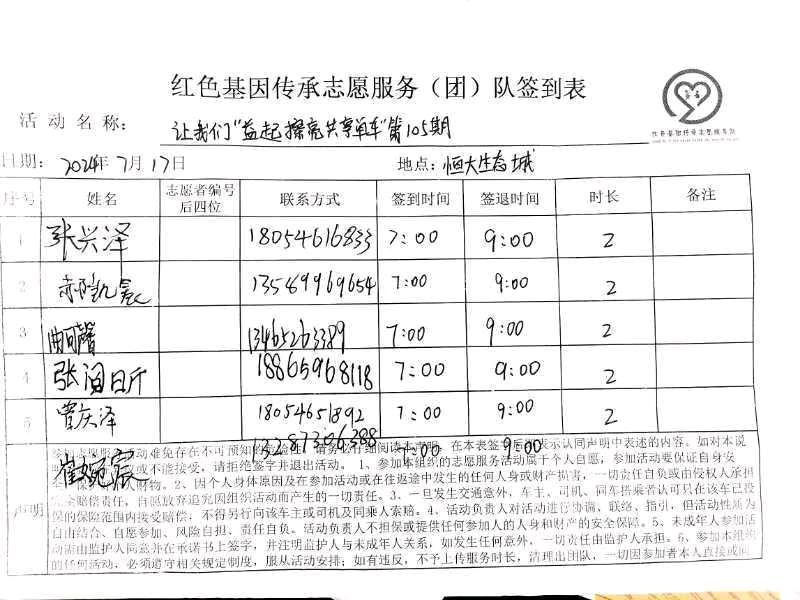 红色基因传承志愿服务（团）队签到表
活动名称：让我们"益起擦亮共享单车"第105期
日期：2024年7月17日 地点：恒大生态城
序号 姓名 志愿者编号后四位 联系方式 签到时间 签退时间 时长 备注
1 张兴泽 18054616833 7:00 9:00 2
2 郝凯晨 13589969654 7:00 9:00 2
3 曲可馨 13465263389 7:00 9:00 2
4 张 18865968118 7:00 9:00 2
5 曹庆泽 18054651892 7:00 9:00 2
崔宛宸 13287306388 7:00 9:00
声明
参加志愿服务活动难免存在不可预知的危险性，请务必仔细阅读本声明，在本表签字后即表示认同声明中表述的内容。如对本说
或不能接受，请拒绝签字并退出活动。 1、参加本组织的志愿服务活动属于个人自愿，参加活动要保证自身安
人财物。2、因个人身体原因及在参加活动或在往返途中发生的任何人身或财产损害，一切责任自负或由侵权人承担
全赔偿责任，自愿放弃追究因组织活动而产生的一切责任。3、一旦发生交通意外，车主、司机、同车搭乘者认可只在该车已投
保的保险范围内接受赔偿，不得另行向该车主或司机及同乘人索赔。4、活动负责人对活动进行协调、联络、指引，但活动性质为
自由结合、自愿参加、风险自担、责任自负。活动负责人不担保或提供任何参加人的人身和财产的安全保障。5、未成年人参加活
动需由监护人同意并在承诺书上签字，并注明监护人与未成年人关系，如发生任何意外，一切责任由监护人承担。6、参加本组织
的任何活动，必须遵守相关规定制度，服从活动安排；如有违反，不予上传服务时长，清理出团队，一切因参加者本人直接或间